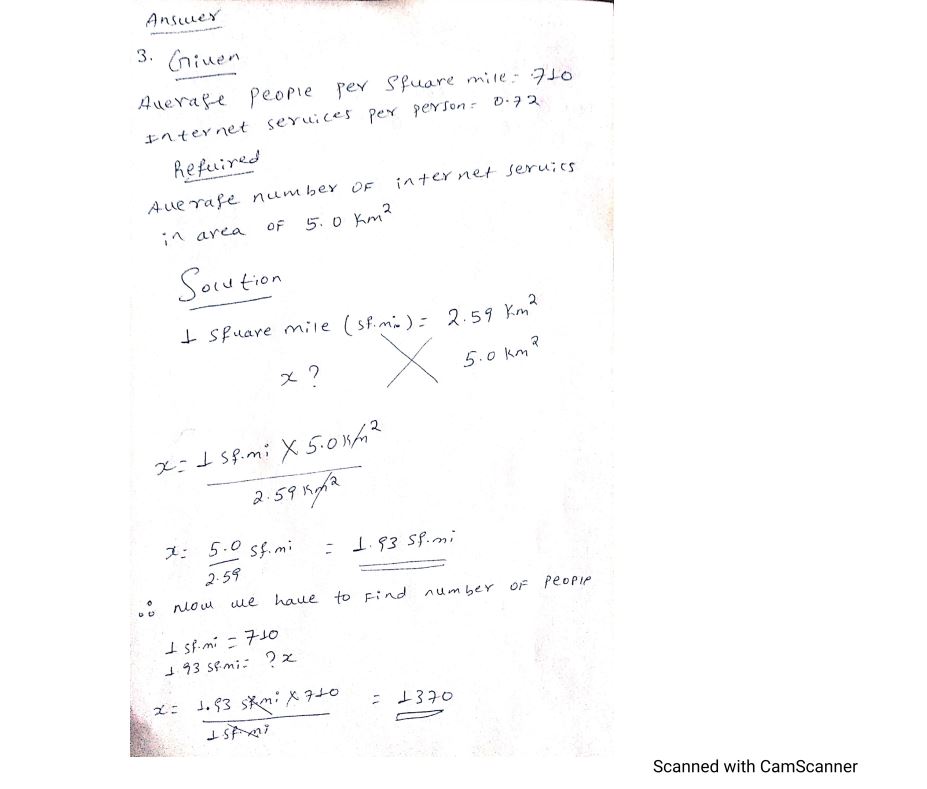 Answer
3. Given
Average people per square mile = 710
Internet services per person = 0.72
Required
Average number of internet servics
in area of 5.0 km²
Solution
1 square mile (sq.mi) = 2.59 km²
x ? 5.0 km²
x = 1 sq.mi X 5.0 km²
2.59 km²
x = 5.0 sq.mi = 1.93 sq.mi
2.59
∴ Now we have to find number of people
1 sq.mi = 710
1.93 sq.mi = ? x
x = 1.93 sq.mi X 710 = 1370
1 sq.mi
Scanned with CamScanner